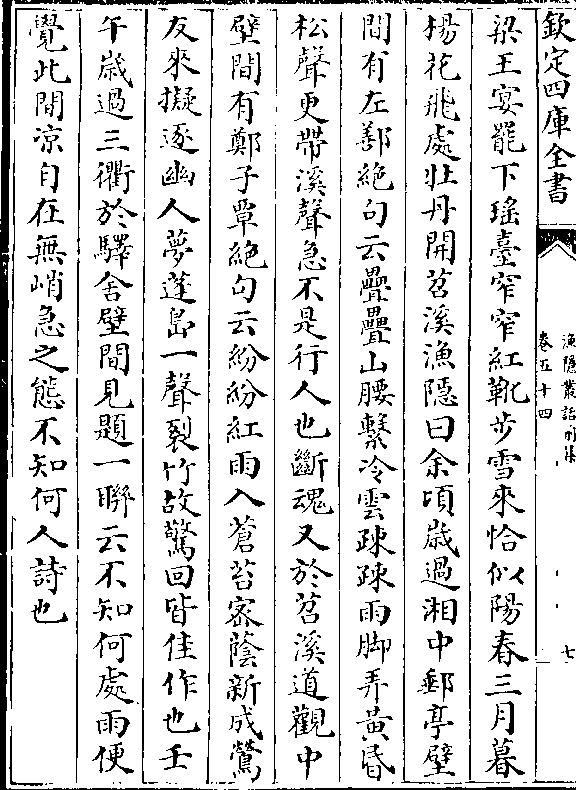 欽定四庫全書
漁隱叢話前集
卷五十四
七
梁王宴罷下瑤臺窄窄紅靴步雪來恰似陽春三月暮
楊花飛處牡丹開苕溪漁隱曰余頃歲過湘中郵亭壁
間有左鄯絶句云疊疊山腰繫冷雲疎疎雨脚弄黄昏
松聲更帶溪聲急不是行人也斷魂又於苕溪道觀中
壁間有鄭子覃絶句云紛紛紅雨入蒼苔宻蔭新成鶯
友來擬逐幽人夢蓬島一聲裂竹故驚回皆佳作也壬
午歲過三衢於驛舍壁間見題一聯云不知何處雨便
覺此間凉自在無峭急之態不知何人詩也